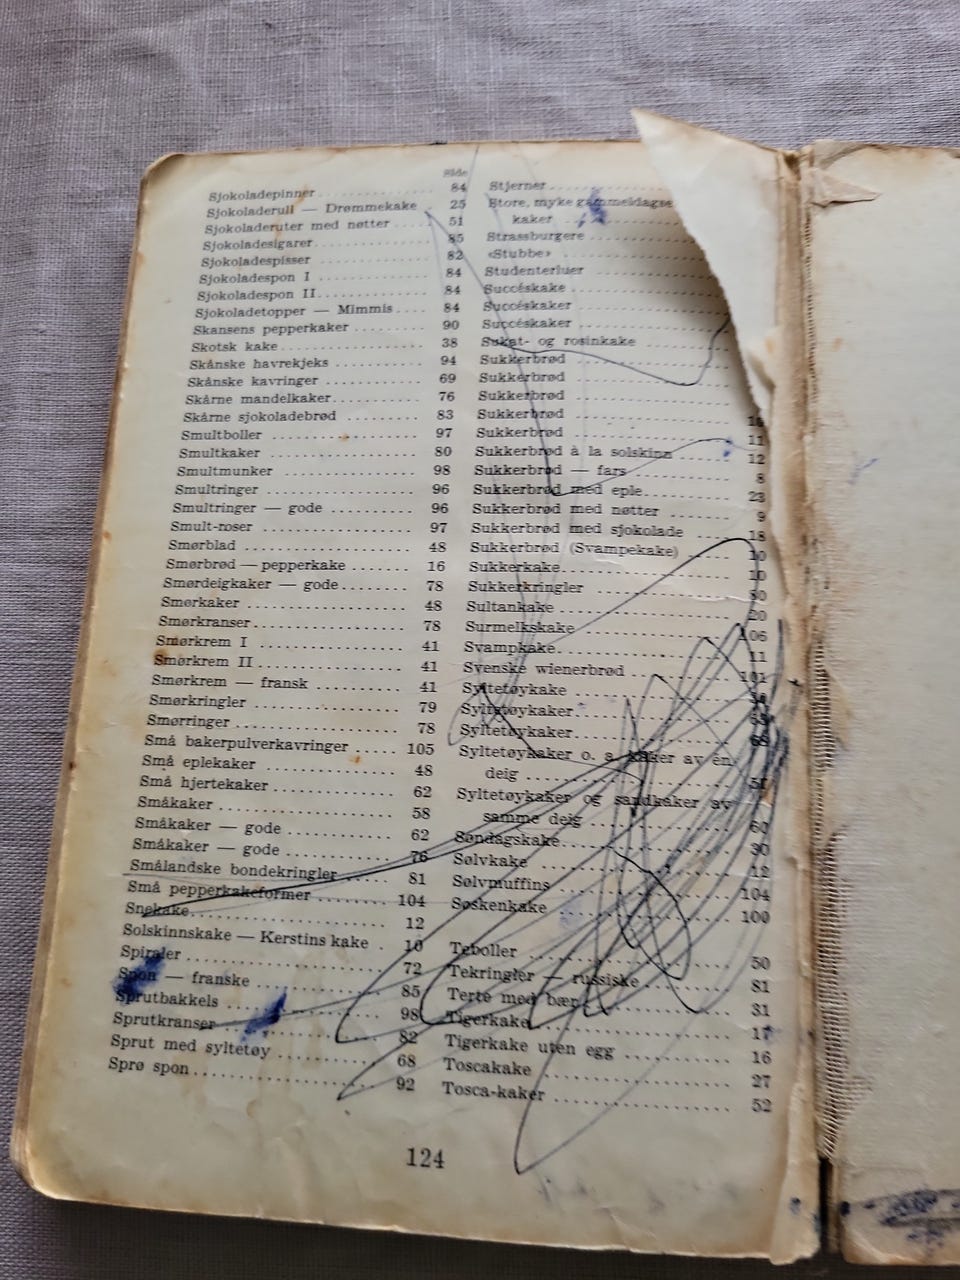 Side
Sjokoladepinner 84
Sjokoladerull — Drømmekake 25
Sjokoladeruter med nøtter 51
Sjokoladesigarer 85
Sjokoladespisser 82
Sjokoladespon I 84
Sjokoladespon II 84
Sjokoladetopper — Mimmis 84
Skansens pepperkaker 90
Skotsk kake 38
Skånske havrekjeks 94
Skånske kavringer 69
Skårne mandelkaker 76
Skårne sjokoladebrød 83
Smultboller 97
Smultkaker 80
Smultmunker 98
Smultringer 96
Smultringer — gode 96
Smult-roser 97
Smørblad 48
Smørbrød — pepperkake 16
Smørdeigkaker — gode 78
Smørkaker 48
Smørkranser 78
Smørkrem I 41
Smørkrem II 41
Smørkrem — fransk 41
Smørkringler 79
Smørringer 78
Små bakerpulverkavringer 105
Små eplekaker 48
Små hjertekaker 62
Småkaker 58
Småkaker — gode 62
Småkaker — gode 76
Smålandske bondekringler 81
Små pepperkakeformer 104
Snekake 12
Solskinnskake — Kerstins kake 10
Spiraler 72
Spon — franske 85
Sprutbakkels 98
Sprutkranser 82
Sprut med syltetøy 68
Sprø spon 92
Stjerner
Store, myke gammeldagse
kaker
Strassburgere
«Stubbe»
Studenterluer
Succéskake
Succéskaker
Succéskaker
Sukat- og rosinkake
Sukkerbrød
Sukkerbrød
Sukkerbrød
Sukkerbrød
Sukkerbrød 11
Sukkerbrød à la solskinn 12
Sukkerbrød — fars 8
Sukkerbrød med eple 23
Sukkerbrød med nøtter 9
Sukkerbrød med sjokolade 18
Sukkerbrød (Svampekake) 10
Sukkerkake 10
Sukkerkringler
Sultankake 20
Surmelkskake 106
Svampkake 11
Svenske wienerbrød 101
Syltetøykake
Syltetøykaker
Syltetøykaker 68
Syltetøykaker o. a. kaker av én
deig 51
Syltetøykaker og sandkaker av
samme deig 60
Søndagskake 30
Sølvkake 12
Sølvmuffins 104
Søskenkake 100
Teboller 50
Tekringler — russiske 81
Terte med bær 31
Tigerkake 17
Tigerkake uten egg 16
Toscakake 27
Tosca-kaker 52
124